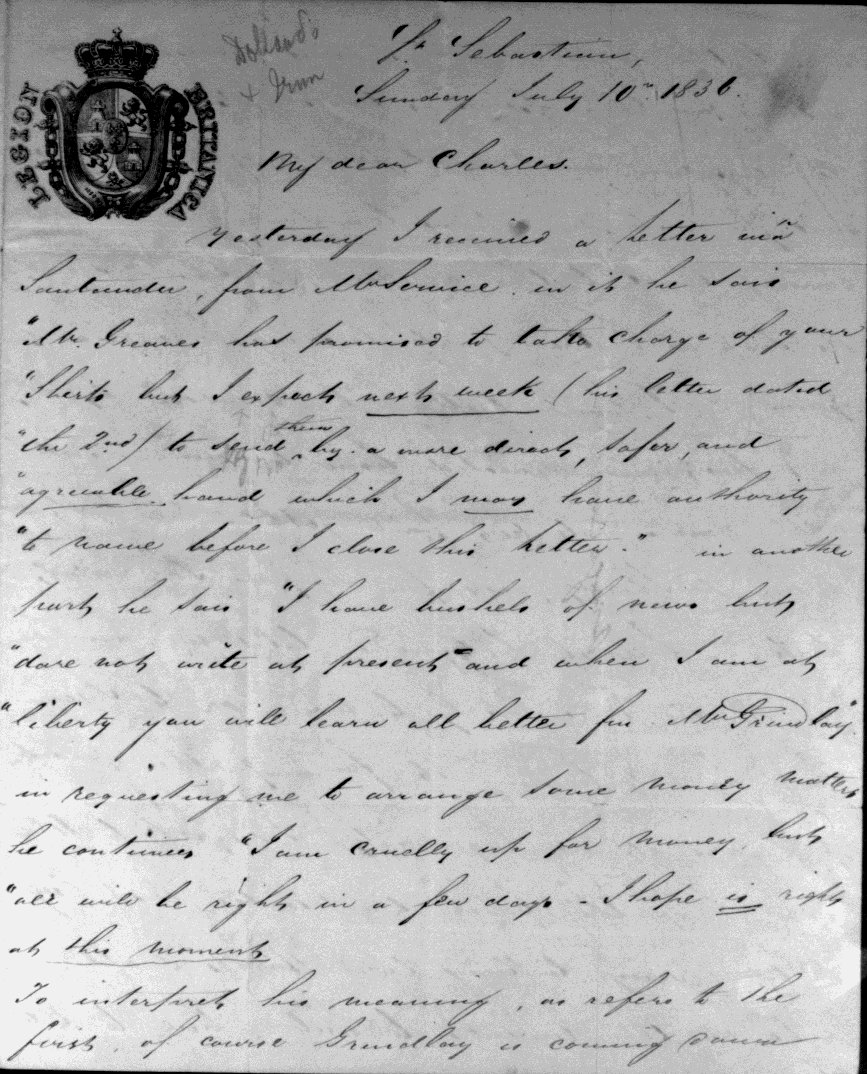 LEGION BRITANICA
St Sebastian,
Sunday July 10th 1836.
My dear Charles.
Yesterday I received a letter via
Santander, from Mr Service. in it he sais
"Mr. Greaves has promised to take charge of your
"Shirts but I expect next week (his letter dated
"the 2nd) to send them by. a more direct, safer, and
"agreeable hand which I may have authority
"to name before I close this letter." in another
part he sais "I have bushels of news but
"dare not write at present" and when I am at
"liberty you will learn all better fm Mr Grindlay"
in requesting me to arrange some money matters
he continues "I am cruelly up for money but
"all will be right in a few days - I hope is right
at this moment
To interpret his meaning, as refers to the
first, of course Grindlay is coming down